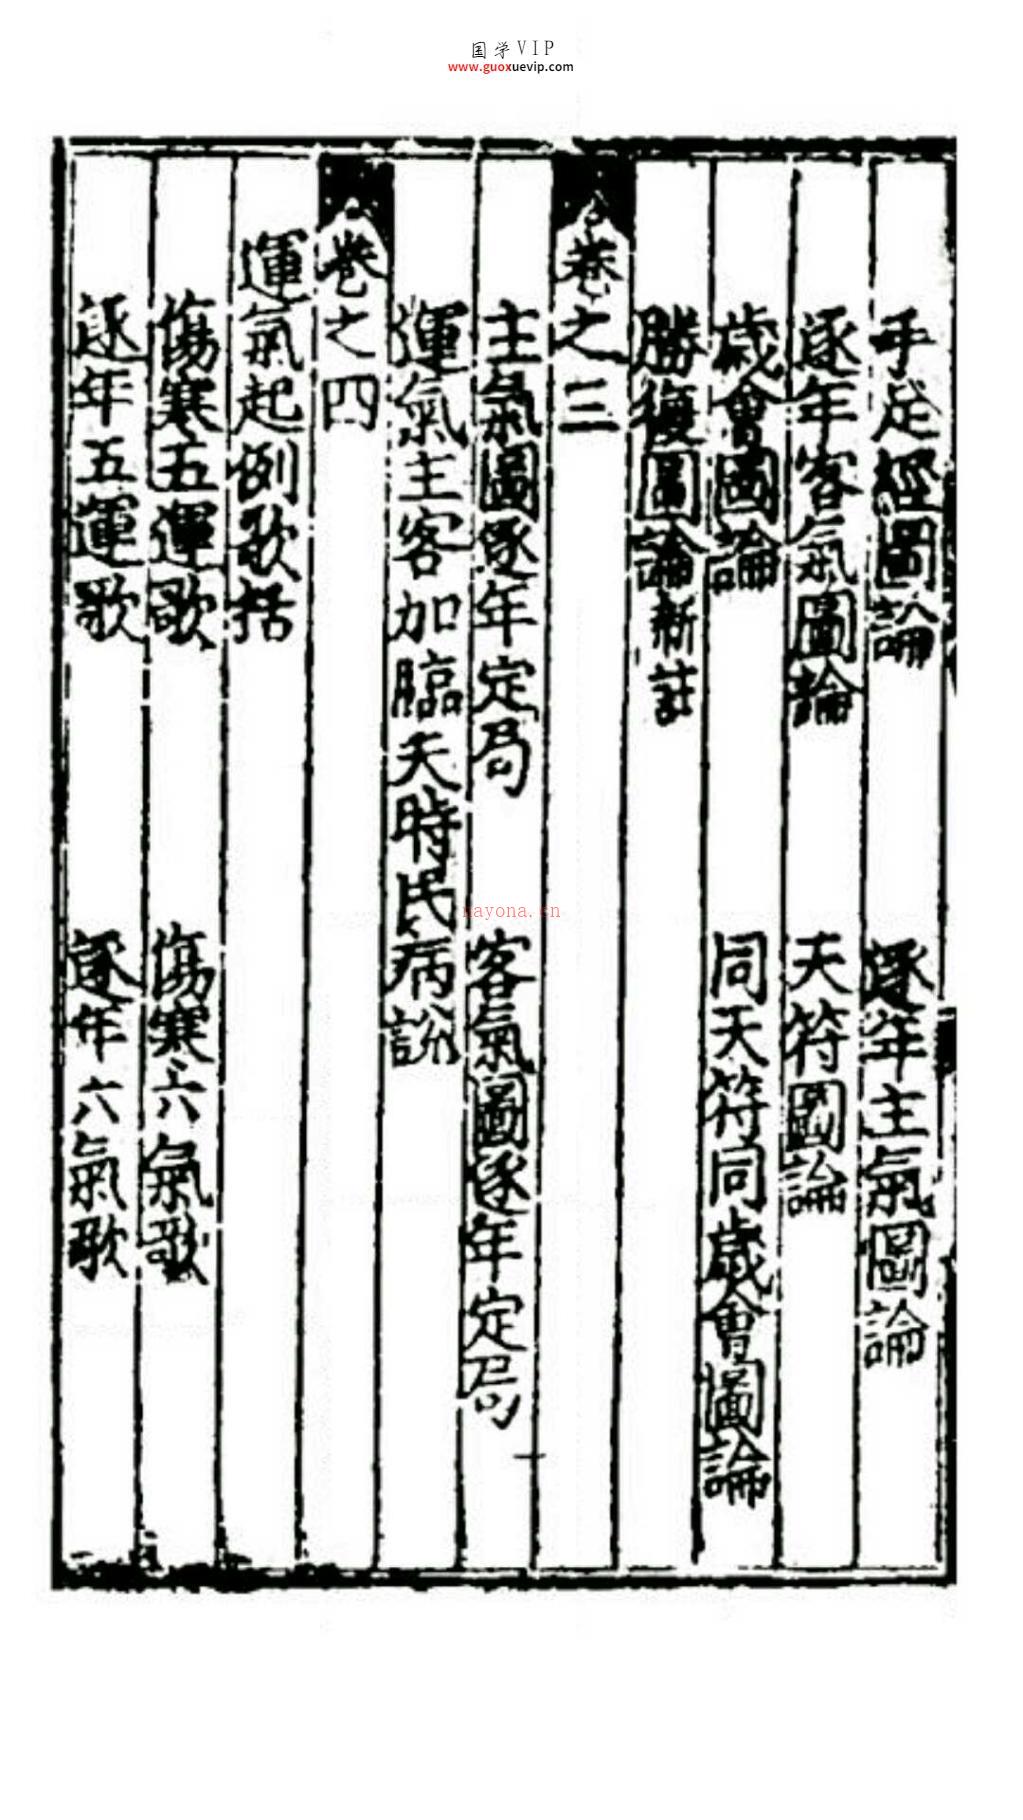 国学VIP
www.guoxuevip.com
手足經圖論 逐年主氣圖論
逐年客氣圖論 天符圖論
歲會圖論 同天符同歲會圖論
勝復圖論新註
卷之三
主氣圖逐年定局 客氣圖逐年定局
運氣主客加臨天時民病說
卷之四
運氣起例歌括
傷寒五運歌 傷寒六氣歌
逐年五運歌 逐年六氣歌
nayona.cn